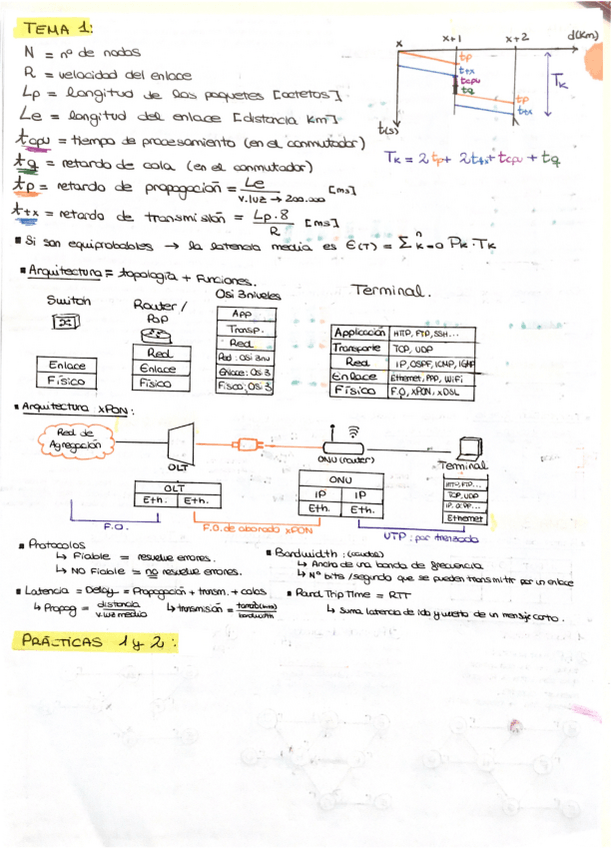 TEMA 1:
N = nº de nodos
R = velocidad del enlace
Lp = longitud de los paquetes [octetos]
Le = longitud del enlace [distancia km]
tcpu = tiempo de procesamiento (en el conmutador)
tq = retardo de cola (en el conmutador)
tp = retardo de propagación = Le / v.luz → 200.000 [ms]
ttx = retardo de transmisión = Lp·8 / R [ms]
x x+1 x+2 d(km)
tp
ttx
tcpu
tq
tp
ttx
Tk
t(s)
Tk = 2tp + 2ttx + tcpu + tq
▪ Si son equiprobables → la latencia media es E(T) = Σ n k=0 Pk · Tk
▪ Arquitectura = topología + Funciones.
Switch
Enlace
Físico
Router / PoP
Red
Enlace
Físico
Osi 3niveles
APP
Transp.
Red
Red: OSi 3niv
Enlace: OSi 3
Físico: OSi 3
Terminal.
Aplicación HTTP, FTP, SSH...
Transporte TCP, UDP
Red IP, OSPF, ICMP, IGMP
Enlace Ethernet, PPP, WiFi
Físico F.O, XPON, XDSL
▪ Arquitectura XPON:
Red de Agregación
OLT
ONU (router)
Terminal
OLT
Eth. Eth.
ONU
IP IP
Eth. Eth.
HTTP, FTP...
TCP, UDP
Ethernet
F.O.
F.O. de abonado XPON
UTP: par trenzado
▪ Protocolos
↳ Fiable = resuelve errores.
↳ NO Fiable = no resuelve errores.
▪ Bandwidth: (caudal)
↳ Ancho de una banda de frecuencia
↳ Nº bits/segundo que se pueden transmitir por un enlace
▪ Latencia = Delay = Propagación + transm. + colas
↳ Propag = distancia / v.luz medio ↳ transmisión = tamaño(bits) / bandwidth
▪ Round Trip Time = RTT
↳ Suma latencia de ida y vuelta de un mensaje corto.
PRÁCTICAS 1 y 2: